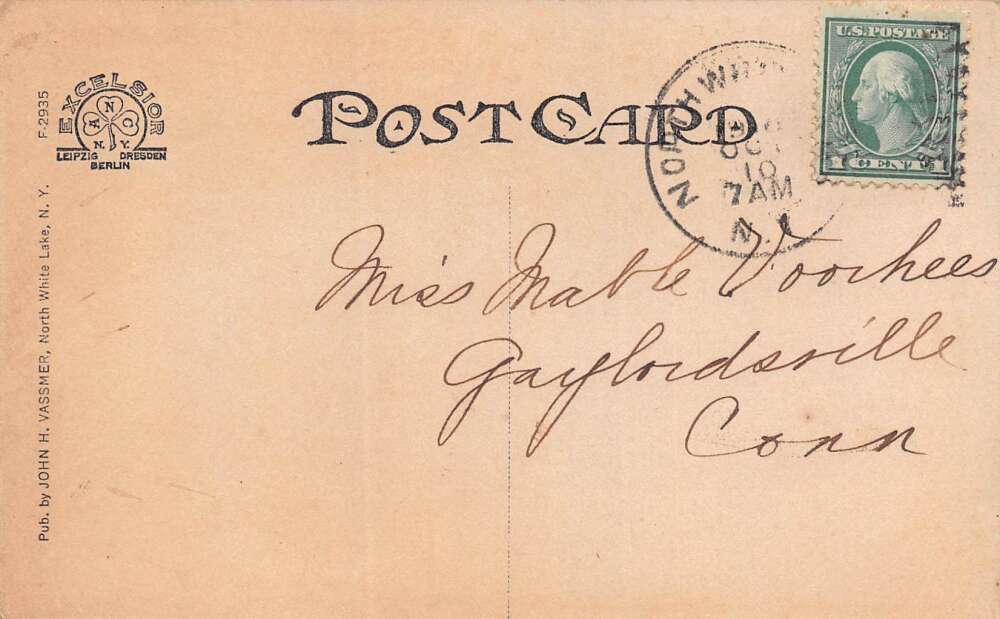 EXCELSIOR
A N C
N. Y.
LEIPZIG DRESDEN
BERLIN
F-2935
Pub. by JOHN H. VASSMER, North White Lake, N. Y.
POST CARD
U.S. POSTAGE
1 CENT 1
NORTH
OCT
10
7 AM
N.Y.
Miss Mable Voorhees
Gaylordsville
Conn